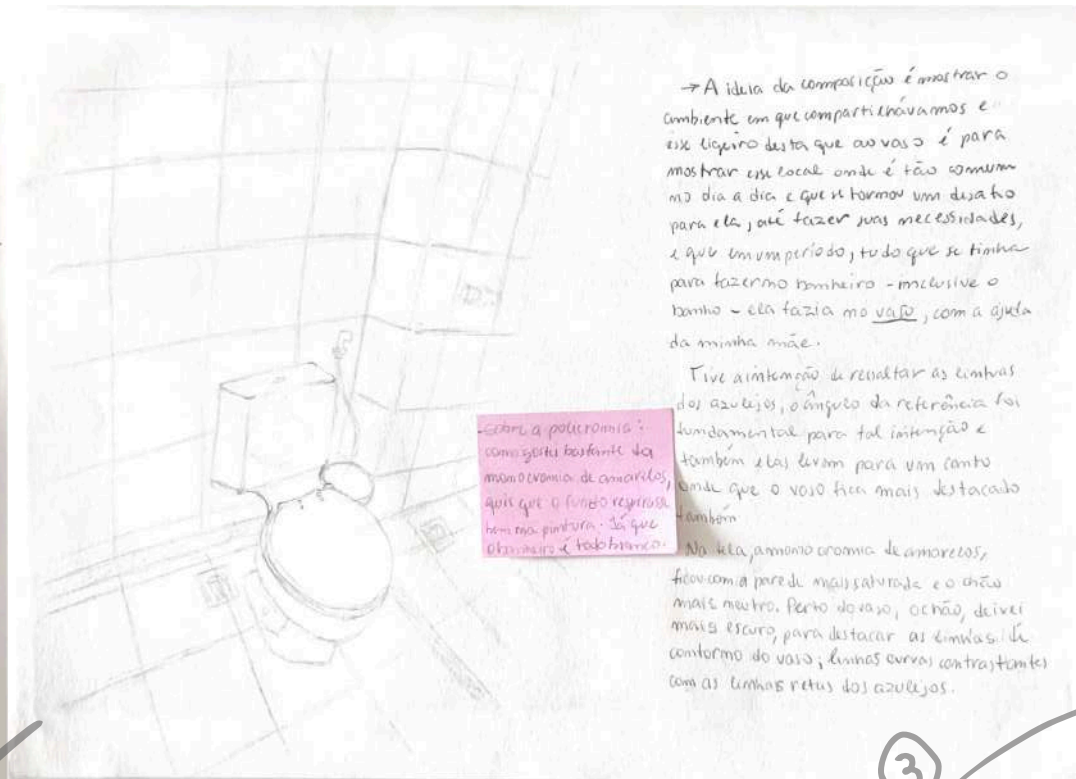 → A ideia da composição é mostrar o
ambiente em que compartilhávamos e
esse ligeiro destaque ao vaso é para
mostrar esse local onde é tão comum
no dia a dia e que se tornou um desafio
para ela, até fazer suas necessidades,
e que em um período, tudo que se tinha
para fazer no banheiro - inclusive o
banho - ela fazia no vaso, com a ajuda
da minha mãe.
Tive a intenção de ressaltar as linhas
dos azulejos, o ângulo da referência foi
fundamental para tal intenção e
também elas levam para um canto
onde que o vaso fica mais destacado
também
Na tela, a monocromia de amarelos,
ficou com a parede mais saturada e o chão
mais neutro. Perto do vaso, o chão, deixei
mais escuro, para destacar as linhas de
contorno do vaso; linhas curvas contrastantes
com as linhas retas dos azulejos.
- sobre a policromia:
como gostei bastante da
monocromia de amarelos,
quis que o fundo respirasse
bem na pintura. Já que
o banheiro é todo branco.
3